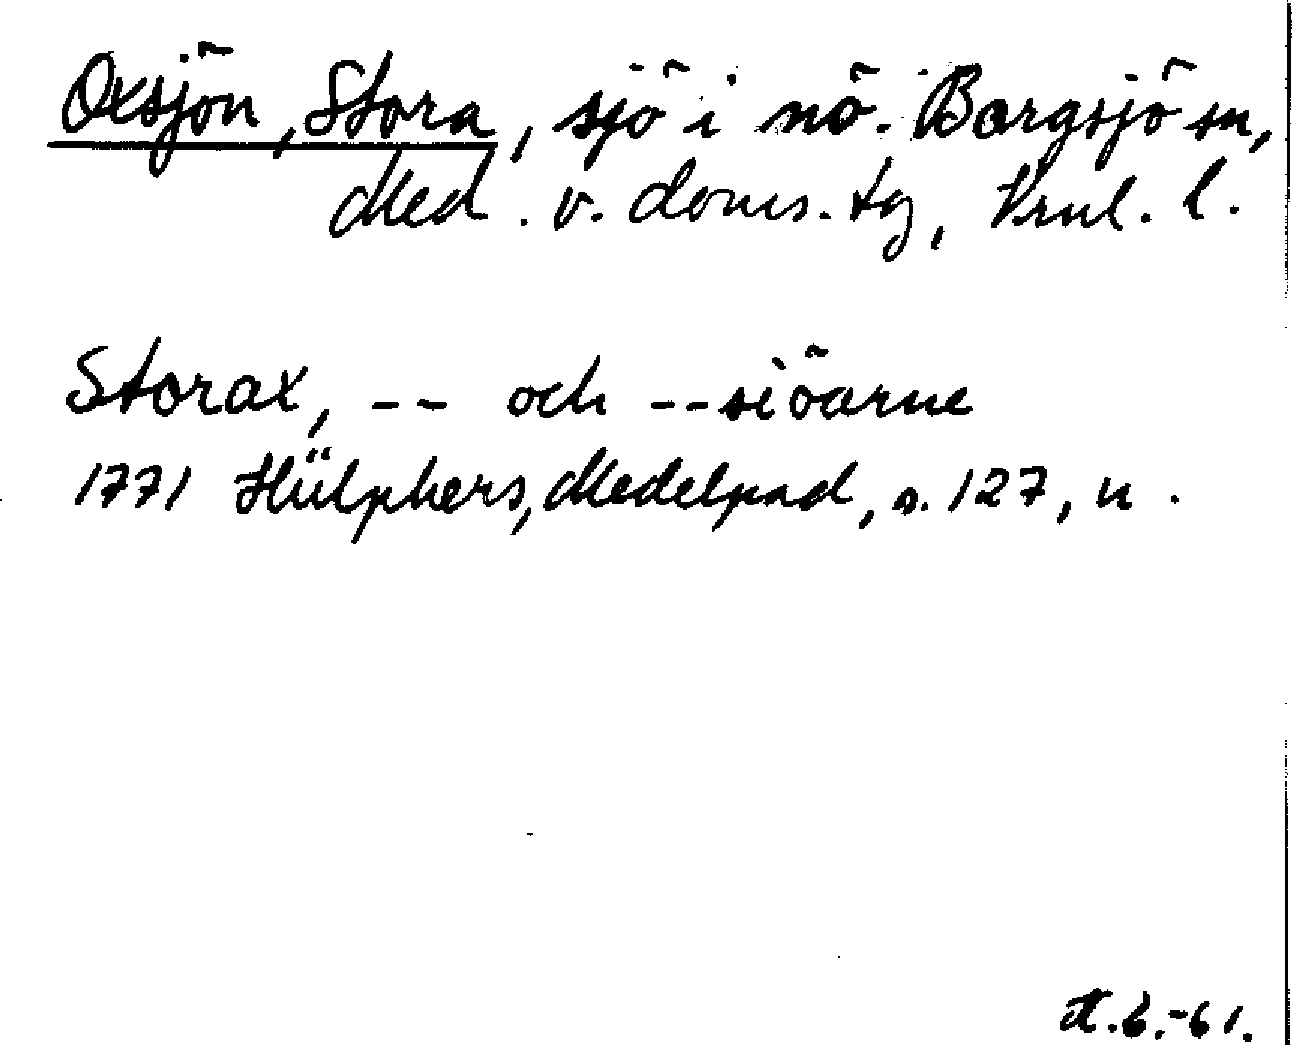 Oxsjön, Stora, sjö i nö. Borgsjö sn,
Med. v. doms. tg, Vrnl. l.
Storax, -- och --siöarne
1771 Hülphers, Medelpad, s. 127, n.
-61.